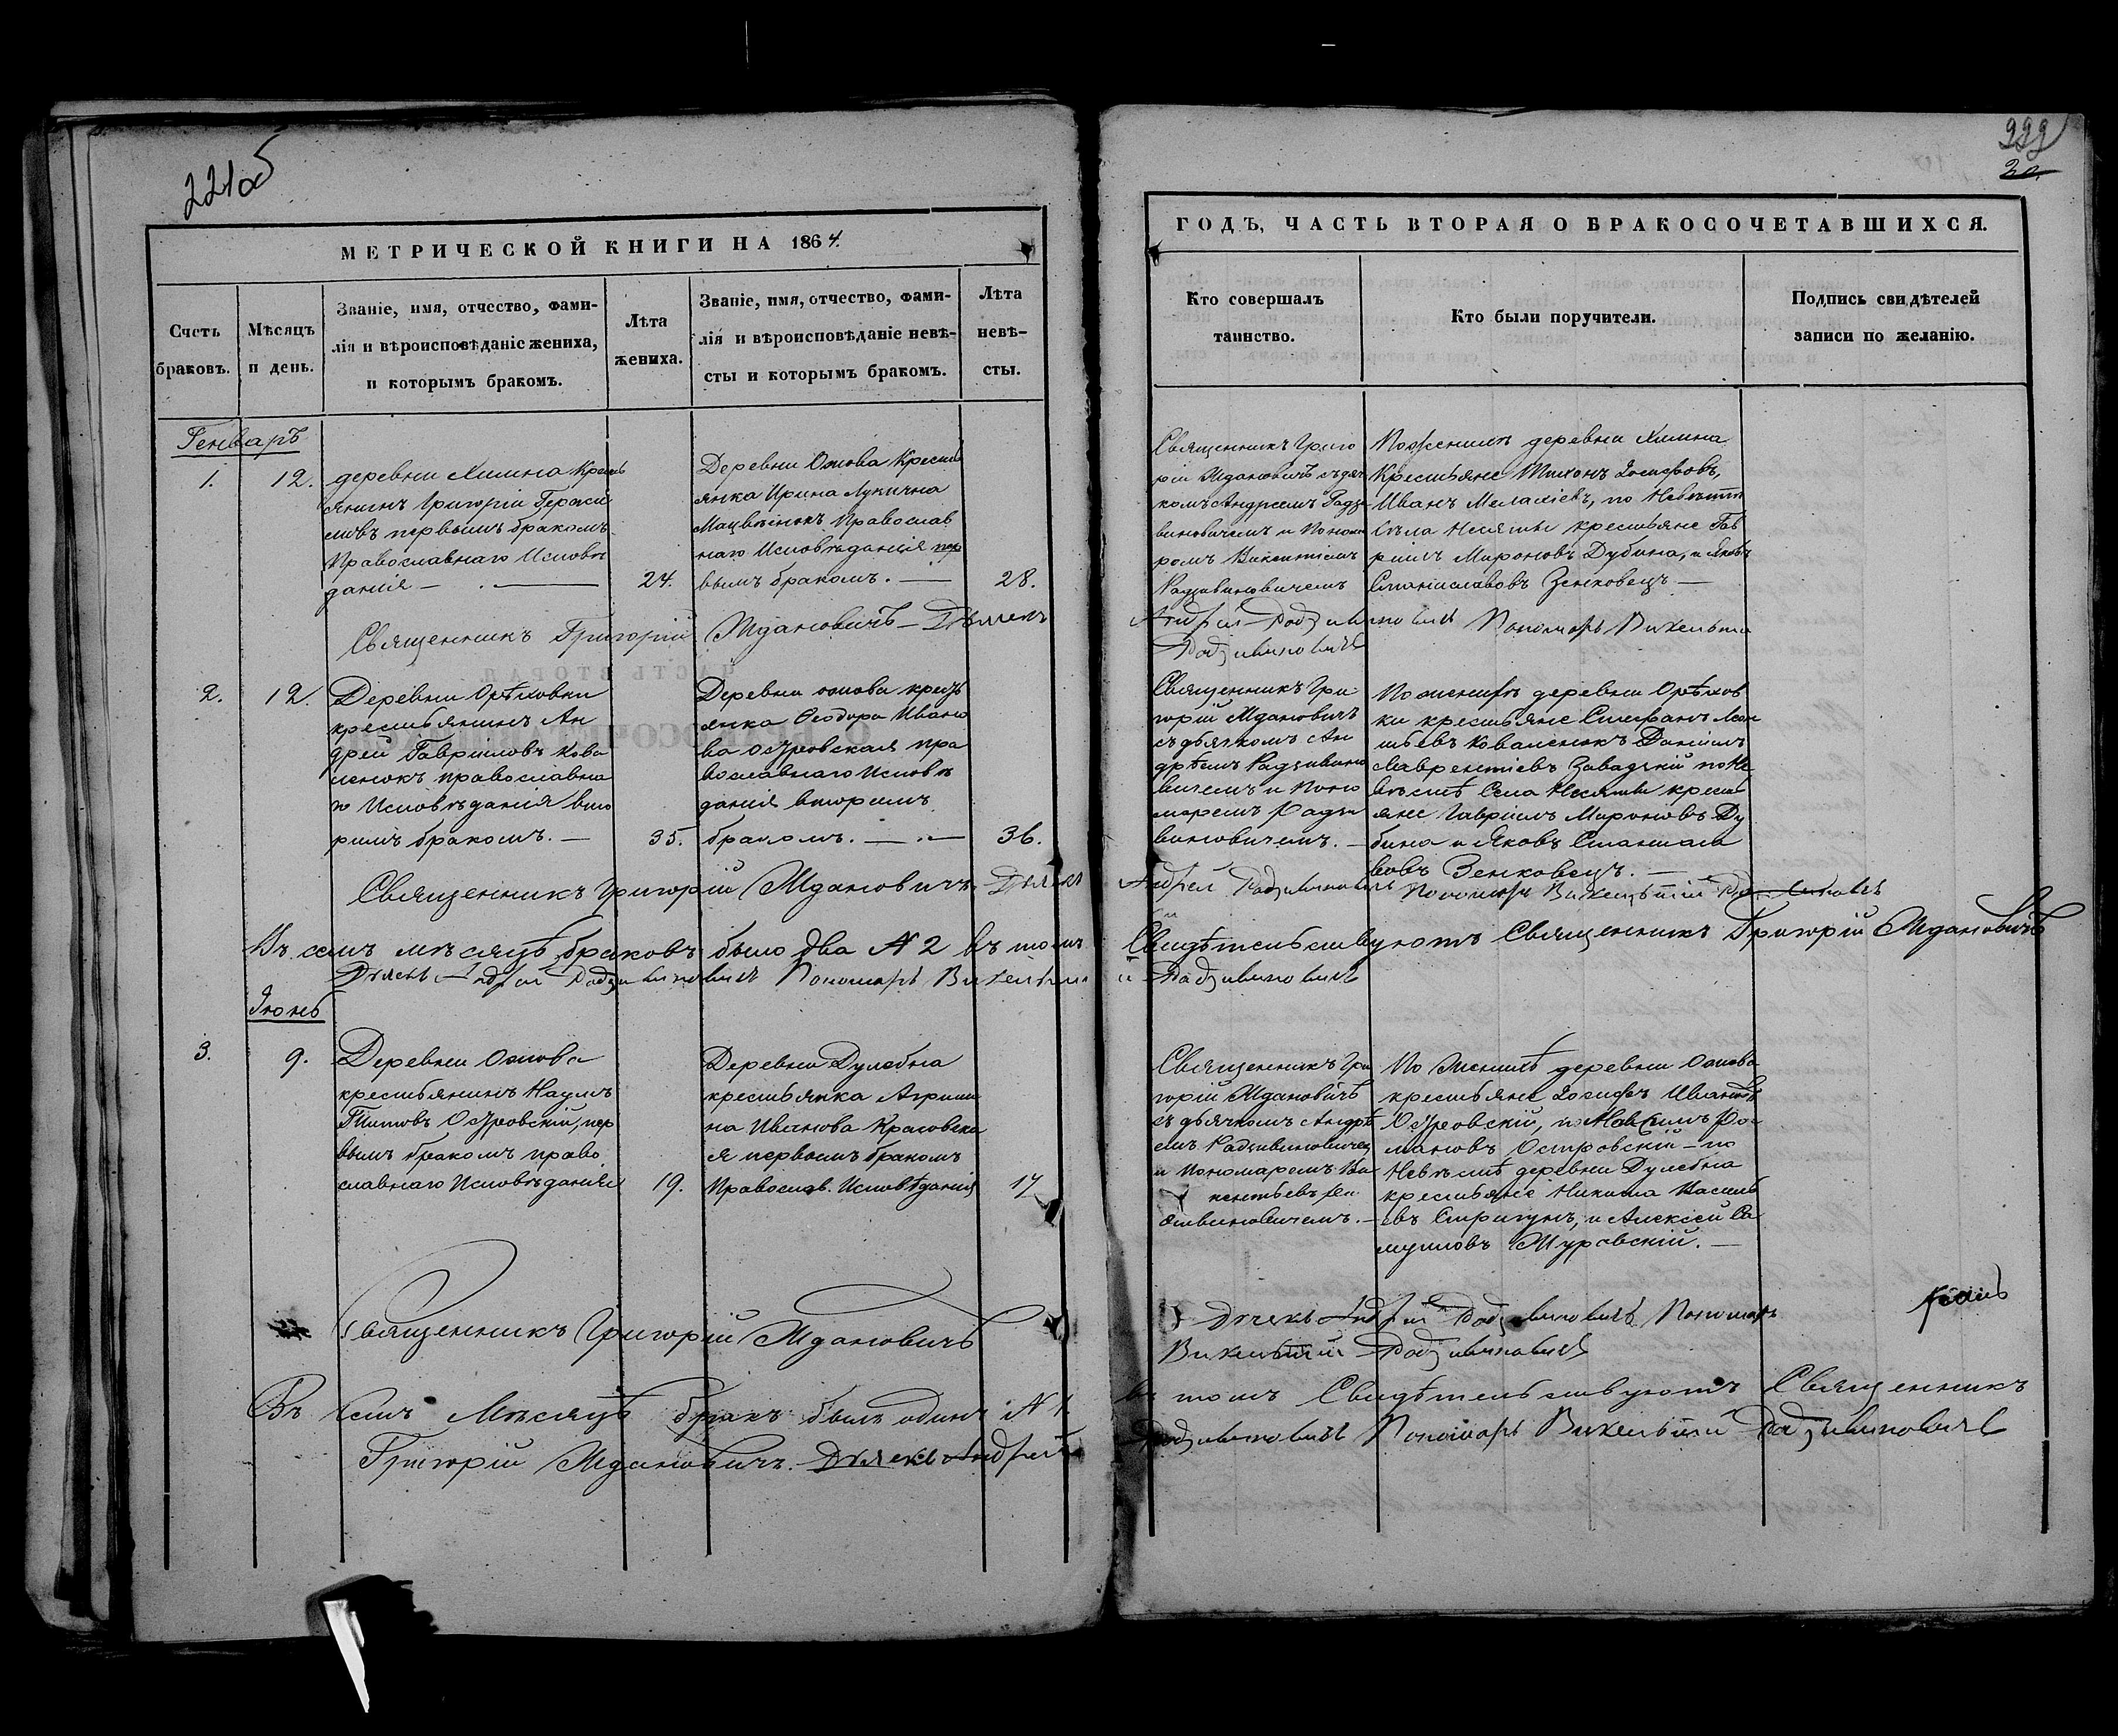 221об
МЕТРИЧЕСКОЙ КНИГИ НА 1864.
Счетъ браковъ.
Мѣсяцъ и день.
Званіе, имя, отчество, фами-
лія и вѣроисповѣданіе жениха,
и которымъ бракомъ.
Лѣта
жениха.
Званіе, имя, отчество, фами-
лія и вѣроисповѣданіе невѣ-
сты и которымъ бракомъ.
Лѣта
невѣ-
сты.
Генварь
1.
12.
деревни Хмина Кресть
янинъ Григорій Гераси
мовъ первымъ бракомъ
Православнаго Исповѣ
данія —
24.
Деревни Ожова Кресть
янка Ирина Лукична
Мацвѣнокъ Православ
наго Исповѣданія пер
вымъ бракомъ. —
28.
Священникъ Григорій Ждановичъ Дьячекъ
2.
12.
Деревни Орѣховки
крестьянинъ Ан
дрей Гавріиловъ Кова
ленокъ православна
го Исповѣданія вто
рымъ бракомъ. —
35.
Деревни ожова кресть
янка Ѳеодора Ивано
ва Островская пра
вославнаго Исповѣ
данія вторымъ
бракомъ. —
36.
Священникъ Григорій Ждановичъ Дьячекъ
Въ семъ мѣсяцѣ браковъ было два № 2 въ томъ
Дьячекъ Андрей Радзивиновичъ Пономарь Викентій
Іюнь
3.
9.
Деревни Ожова
крестьянинъ Наумъ
Титовъ Островскій, пер
вымъ бракомъ право
славнаго Исповѣданія
19.
Деревни Дулебна
крестьянка Агрипи
на Иванова Красовска
я первымъ бракомъ
Православ. Исповѣданія
17
Священникъ Григорій Ждановичъ
Въ семъ Мѣсяцѣ бракъ былъ одинъ № 1
Григорій Ждановичъ. Дьячекъ Андрей
222
22
ГОДЪ, ЧАСТЬ ВТОРАЯ О БРАКОСОЧЕТАВШИХСЯ.
Кто совершалъ
таинство.
Кто были поручители.
Подпись свидѣтелей
записи по желанію.
Священникъ Григо
рій Ждановичъ съ дяч
комъ Андреемъ Радзи
виновичемъ и Понома
ромъ Викентіемъ
Радзивиновичемъ
По женихѣ деревни Хмина
Крестьяне Тихонъ Іосифовъ,
Иванъ Малахіевъ, по Невѣстѣ
Села Несяты крестьяне Гав
рiилъ Мироновъ Дубина, и Яковъ
Станиславовъ Зенковецъ —
Андрей Радзивиновичъ Пономарь Викентій
Радзивиновичъ
Священникъ Гри
горій Ждановичъ
съ дьячкомъ Ан
дрѣемъ Радзивино
вичемъ и Поно
маремъ Радзи
виновичемъ. —
По женихѣ деревни Орѣхов
ки крестьяне Стефанъ
Коваленокъ Даніилъ
Лаврентіевъ Завадзкій по Не
вѣстѣ Села Несяты кресть
яне Гавріилъ Мироновъ Ду
бина и Яковъ Станисла
вовъ Зенковецъ. —
Андрей Радзивиновичъ Пономарь Викентій
Свидѣтельствуютъ Священникъ Григорій Ждановичъ
Радзивиновичъ
Священникъ Гри
горій Ждановичъ
съ дьячкомъ Андрѣ
емъ Радзивиновичем
и Пономаремъ Ви
По Женихѣ деревни Ожова
крестьяне Іосифъ Ивановъ
Островскій, и Максимъ Ро
мановъ Островскій — по
Невѣстѣ деревни Дулебна
крестьяне Никита Василь
евъ Стригунъ, и Алексей Са
муиловъ Журавскій. —
Дячекъ Андрей Радзивиновичъ Пономарь
Викентій Радзивиновичъ
въ томъ Свидѣтельствуютъ Священникъ
Радзивиновичъ Пономарь Викентій Радзивиновичъ